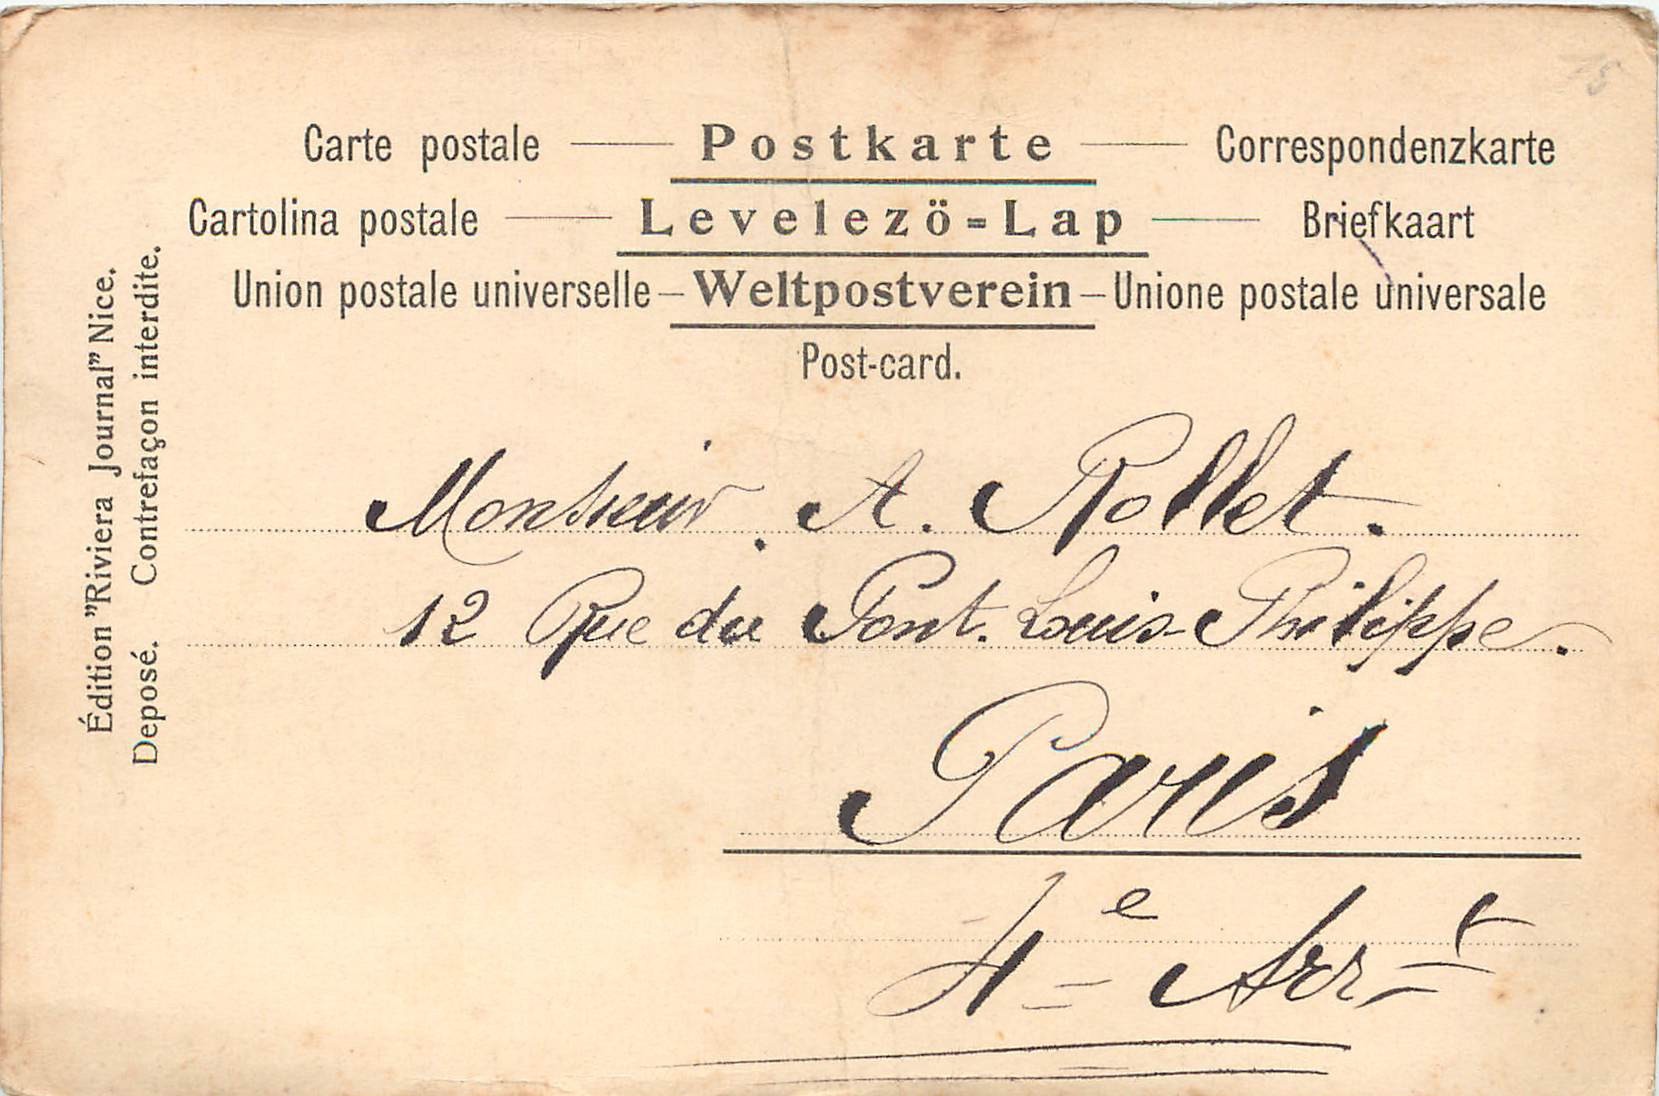 15
Carte postale — Postkarte — Correspondenzkarte
Cartolina postale — Levelezö=Lap — Briefkaart
Union postale universelle — Weltpostverein — Unione postale universale
Post-card.
Édition "Riviera Journal" Nice.
Deposé. Contrefaçon interdite.
Monsieur. A. Rollet.
12 Rue du Pont. Louis-Philippe.
Paris
4e Arrt